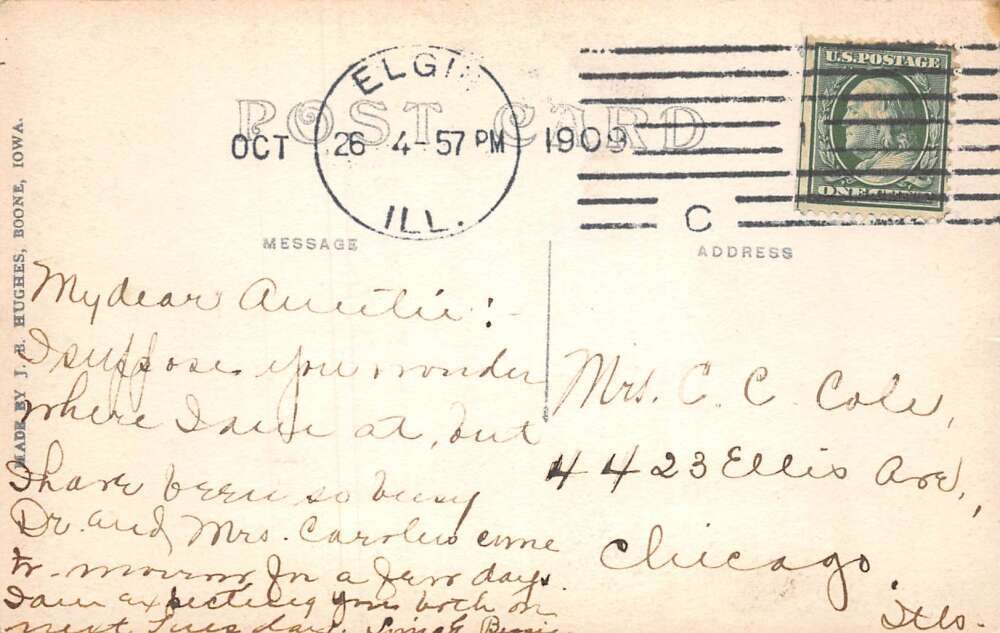 ELGIN
POST CARD
OCT 26 4-57 PM 1909
ILL.
C
U.S. POSTAGE
ONE CENT
MADE BY J. B. HUGHES, BOONE, IOWA.
MESSAGE
My dear Auntie :-
I suppose you wonder
where I am at, but
I have been so busy
Dr. and Mrs. come
for a few days.
I am expecting you both on
next Tuesday.
ADDRESS
Mrs. C. C. Cole,
4423 Ellis Ave,
Chicago,
Ills.